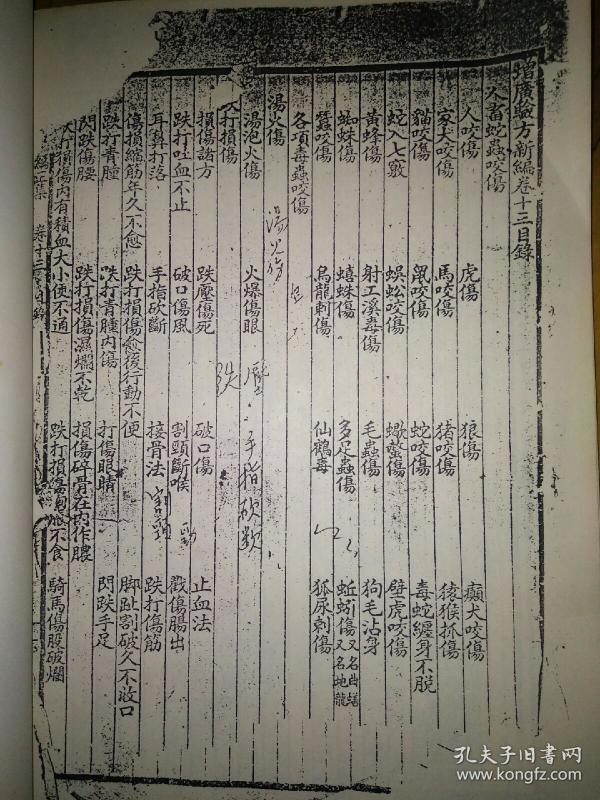 增廣驗方新編卷十三目錄
人畜蛇蟲咬傷
人咬傷 虎傷 狼傷 癲犬咬傷
家犬咬傷 馬咬傷 猪咬傷 猿猴抓傷
貓咬傷 鼠咬傷 蛇咬傷 毒蛇纏身不脱
蛇入七竅 蜈蚣咬傷 蠍螫傷 壁虎咬傷
黄蜂傷 射工溪毒傷 毛蟲傷 狗毛沾身
蜘蛛傷 蟢蛛傷 多足蟲傷 蚯蚓傷又名曲蟮又名地龍
蠶咬傷 烏龍刺傷 仙鶴毒 狐尿刺傷
各項毒蟲咬傷
湯火傷
湯火傷
湯泡火傷 火爆傷眼
手指砍斷
打損傷
跌
損傷諸方 跌壓傷死 破口傷 止血法
跌打吐血不止 破口傷風 割頸斷喉 戳傷腸出
耳鼻打落 手指砍斷 接骨法 跌打傷筋
割頸
傷損縮筋年久不愈 跌打損傷愈後行動不便 脚趾割破久不收口
跌打青腫 跌打青腫内傷 打傷眼睛 閃跌手足
閃跌傷腰 跌打損傷濕爛不乾 損傷碎骨在肉作膿
跌打損傷内有積血大小便不通 跌打損傷 不食 騎馬傷股破爛
孔夫子旧書网
www.kongfz.com